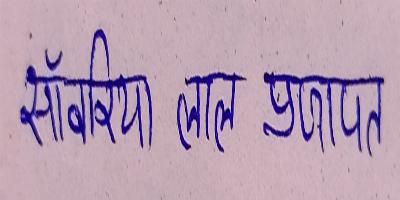 साँवरिया लाल प्रजापत